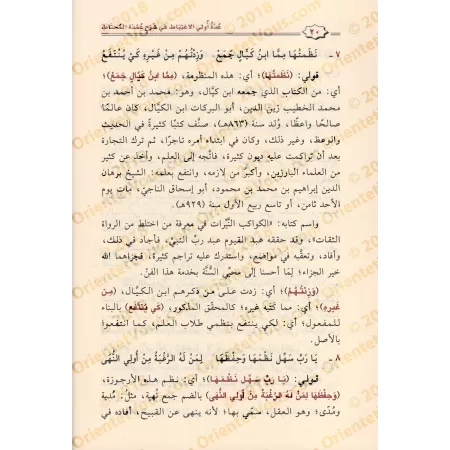 عُدَّةُ أُولِي الاغْتِبَاطِ فِي شَرْحِ عُمْدَةِ المُحْتَاطِ
٢٠
٧ - نَظَمْتُهَا مِمَّا ابنُ كَيَّالٍ جَمَعْ وَزِدْتُهُمْ مِنْ غَيْرِهِ كَيْ يُنْتَفَعْ
قولي: (نَظَمْتُهَا)؛ أي: هذه المنظومة، (مِمَّا ابنُ كَيَّالٍ جَمَعْ)؛
أي: من الكتاب الذي جمعه ابن كيال، وهو: محمد بن أحمد بن
محمد الخطيب زين الدين، أبو البركات ابن الكيّال، كان عالمًا
صالحًا واعظًا، وُلد سنة (٨٦٣هـ)، صنَّف كتبًا كثيرةً في الحديث
والوعظ، وغير ذلك، وكان في ابتداء أمره تاجرًا، ثم ترك التجارة
بعد أن تراكمت عليه ديون كثيرة، فاتَّجه إلى العلم، وأخذ عن كثير
من العلماء البارزين، وأكبر من لازمه، وانتفع بعلمه: الشيخ برهان
الدين إبراهيم بن محمد بن محمود، أبو إسحاق الناجيّ، مات يوم
الأحد ثامن، أو تاسع ربيع الأول سنة (٩٢٩هـ).
واسم كتابه: «الكواكب النَّيِّرات في معرفة من اختلط من الرواة
الثقات»، وقد حققه عبد القيوم عبد ربّ النبيّ، فأجاد في ذلك،
وأفاد، وتعقَّبه في مواضع، واستدرك عليه تراجم كثيرة، فجزاهما الله
خير الجزاء؛ لِمَا أحسنا إلى محبّي السُّنَّة بخدمة هذا الفنّ.
(وَزِدْتُهُمْ)؛ أي: زدت على من ذكرهم ابن الكيال، (مِنْ
غَيْرِهِ)؛ أي: مما كتبه غيره؛ كالمحقّق المذكور، (كَيْ يُنْتَفَعْ) بالبناء
للمفعول؛ أي: لكي ينتفع بنظمي طلاب العلم، كما انتفعوا
بالأصل.
٨ - يَا رَبِّ سَهِّلْ نَظْمَهَا وَحِفْظَهَا لِمَنْ لَهُ الرَّغْبَةُ مِنْ أُولِي النُّهَى
قولي: (يَا رَبِّ سَهِّلْ نَظْمَهَا)؛ أي: نظم هذه الأرجوزة،
(وَحِفْظَهَا لِمَنْ لَهُ الرَّغْبَةُ مِنْ أُولِي النُّهَى) بالضم جمع نُهية، مثل: مُدية
ومُدًى؛ وهو العقل، سمّي بها؛ لأنه ينهى عن القبيح، أفاده في